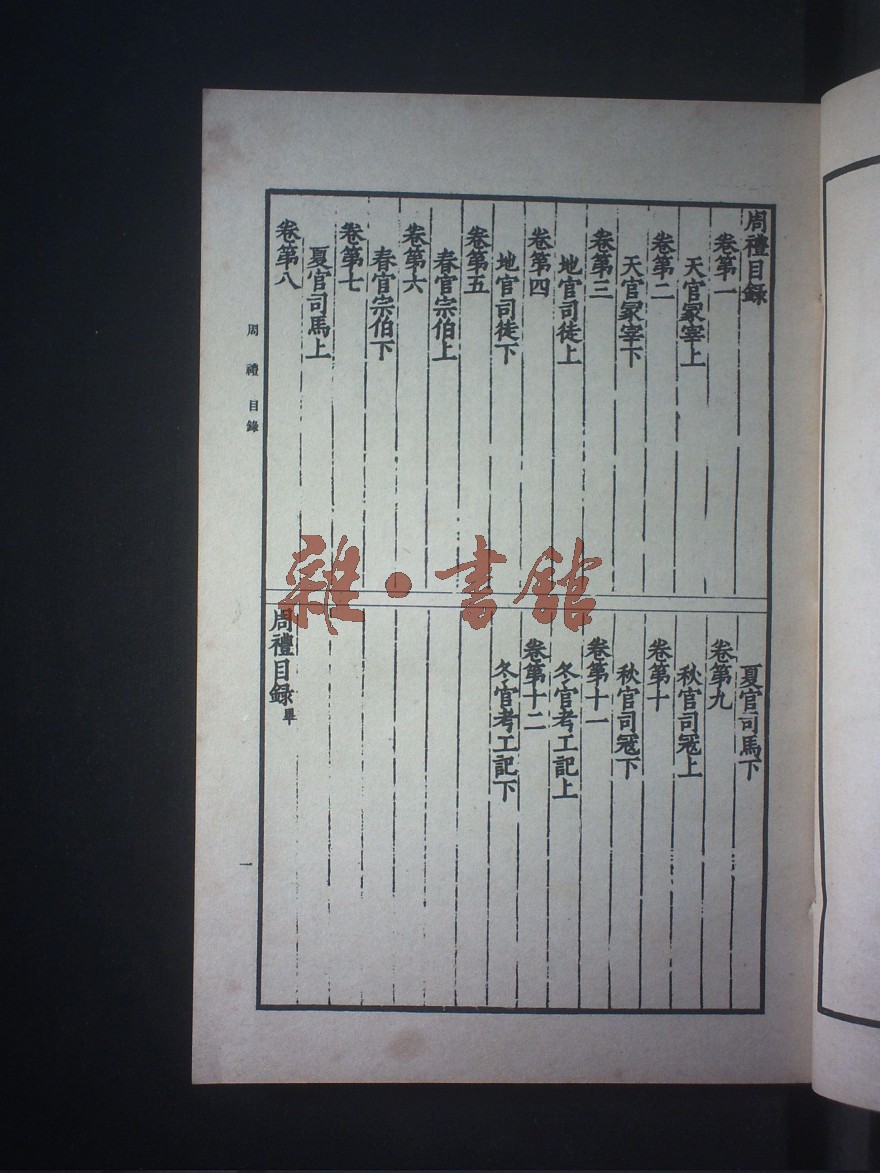 周禮目録
卷第一
天官冢宰上
卷第二
天官冢宰下
卷第三
地官司徒上
卷第四
地官司徒下
卷第五
春官宗伯上
卷第六
春官宗伯下
卷第七
夏官司馬上
卷第八
夏官司馬下
卷第九
秋官司寇上
卷第十
秋官司寇下
卷第十一
冬官考工記上
卷第十二
冬官考工記下
周禮目録畢
周禮 目錄
一
雜·書館